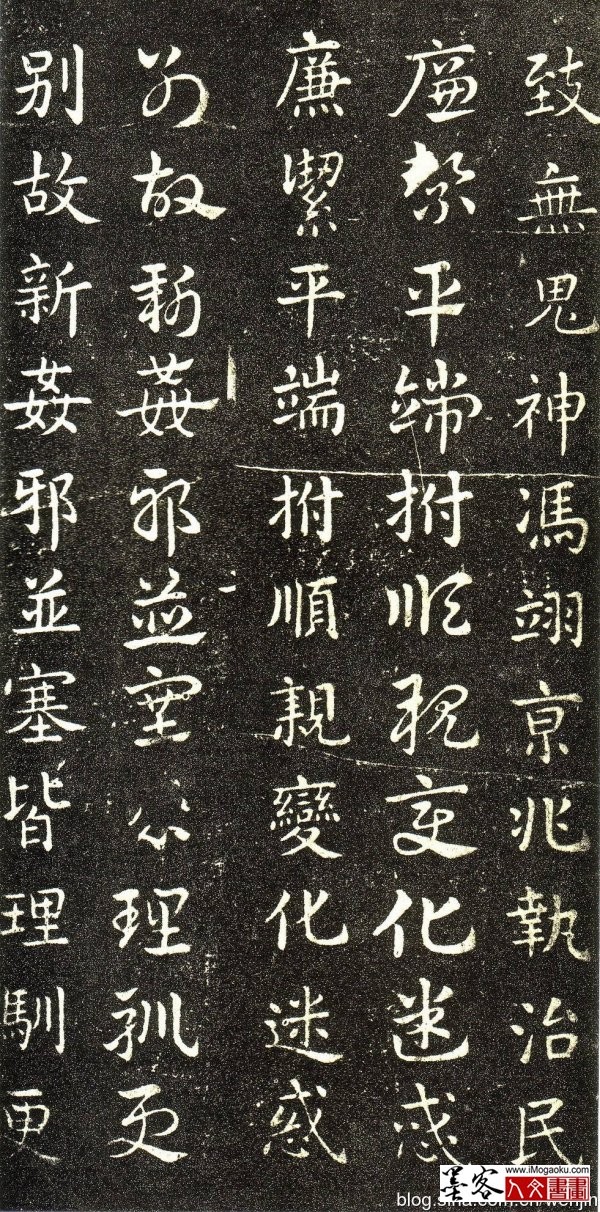 致無鬼神馮翊京兆執治民
廉絜平端拊順親變化迷惑
廉絜平端拊順親變化迷惑
別故新姦邪並塞皆理馴更
別故新姦邪並塞皆理馴更
墨客 www.iMogaoku.com
人文書畫
blog.sina.com.cn/wenjin